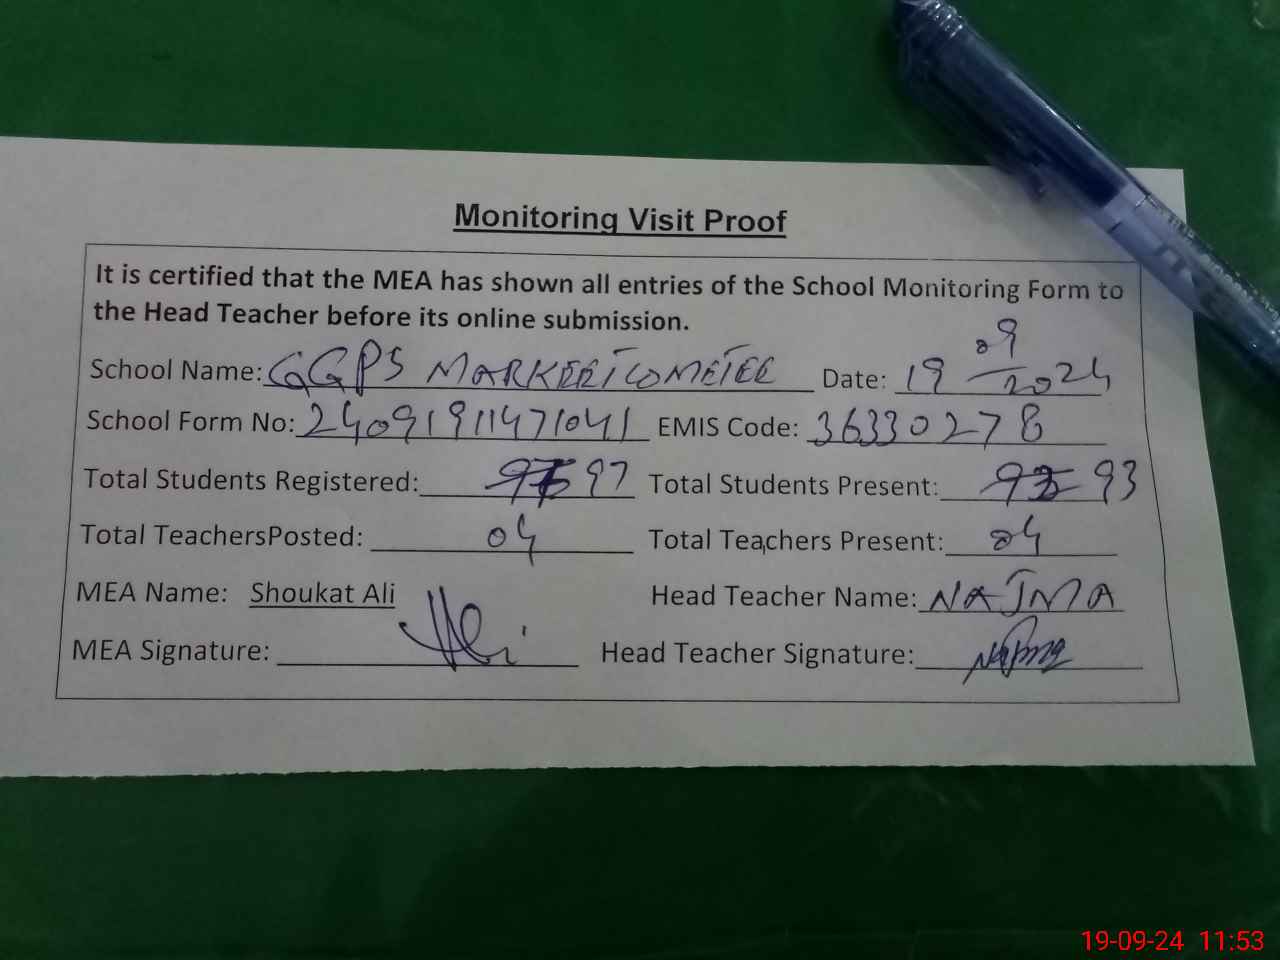 Monitoring Visit Proof
It is certified that the MEA has shown all entries of the School Monitoring Form to
the Head Teacher before its online submission.
School Name: GGPS MARKEETCOMETEE Date: 19 09 2024
School Form No: 24091911471041 EMIS Code: 36330278
Total Students Registered: 97 Total Students Present: 93
Total TeachersPosted: 04 Total Teachers Present: 04
MEA Name: Shoukat Ali Head Teacher Name: NAJMA
MEA Signature: Head Teacher Signature: Najma
19-09-24 11:53